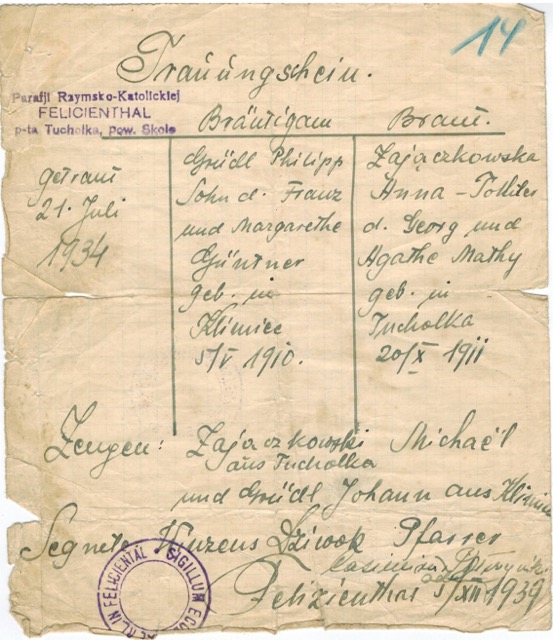 14
Trauungschein.
Parafji Rzymsko-Katolickiej
FELICIENTHAL
p-ta Tucholka, pow. Skole
Bräutigam
Braut.
getraut
21. Juli
1934
Grüdl Philipp
Sohn d. Franz
und Margarethe
Güntner
geb. in
Klimiec
5/V 1910.
Zajączkowska
Anna - Tochter
d. Georg und
Agathe Mathy
geb. in
Tucholka
20/X 1911
Zeugen: Zajaczkowski Michaël
aus Tucholka
und Grüdl Johann aus Klimiec
Segnete Winzens Dziwok Pfarrer
Casimirus
Felizienthal 5/XII 1939
SIGILLUM IN FELICIENTAL